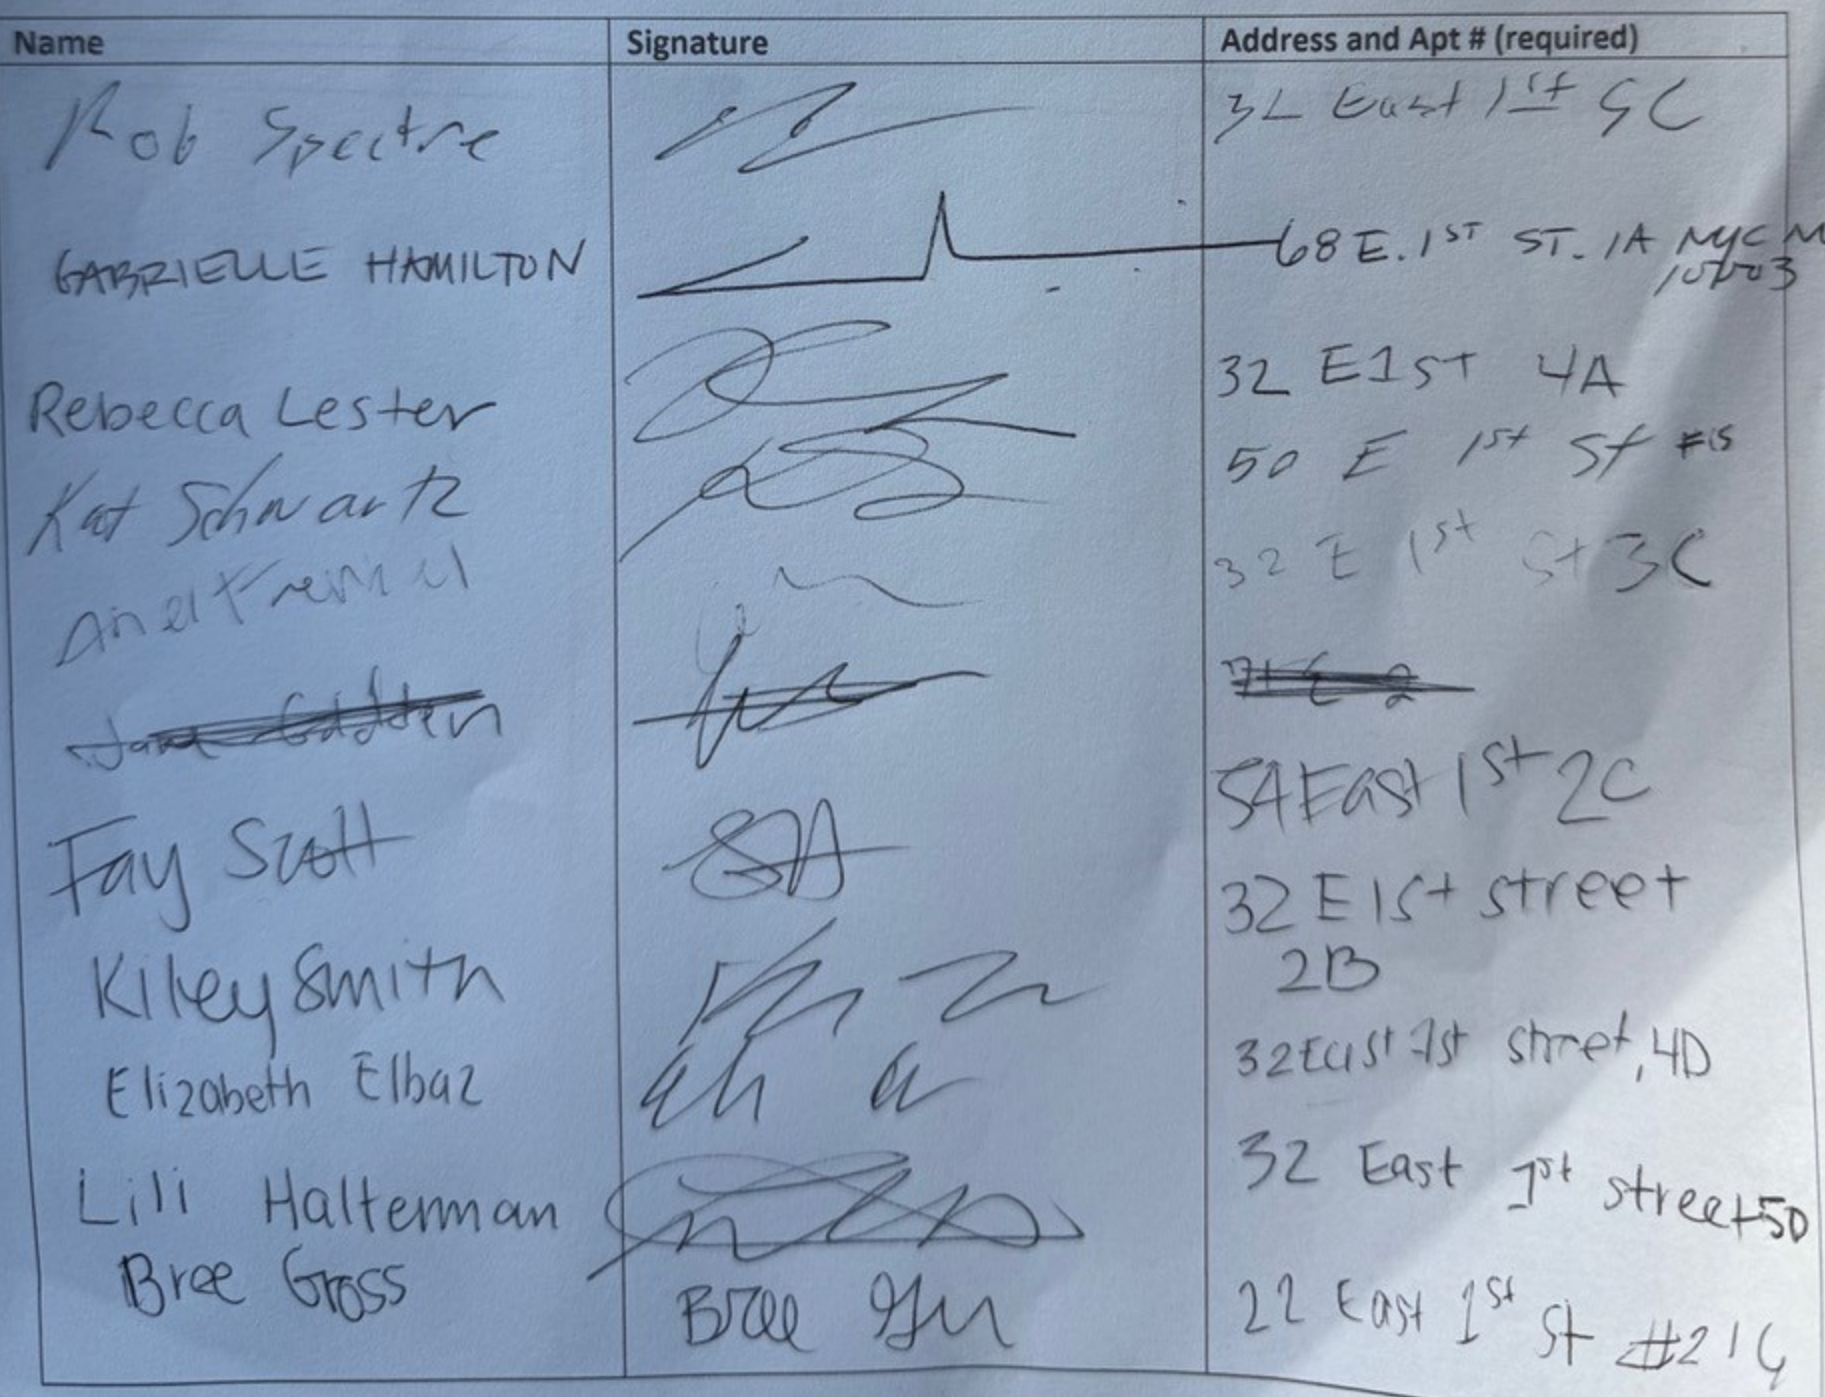 Name Signature Address and Apt # (required)
Rob Spectre 32 East 1st 5C
GABRIELLE HAMILTON 68 E. 1ST ST. 1A NYC
10003
Rebecca Lester 32 E1ST 4A
Kat Schwartz 50 E 1st St
32 E 1st St 3C
Fay Scott 54 East 1st 2C
Kiley Smith 32 E 1st street
2B
Elizabeth Elbaz 32 East 1st street, 4D
Lili Halterman 32 East 1st street 5D
Bree Gross Bree 22 East 1st St